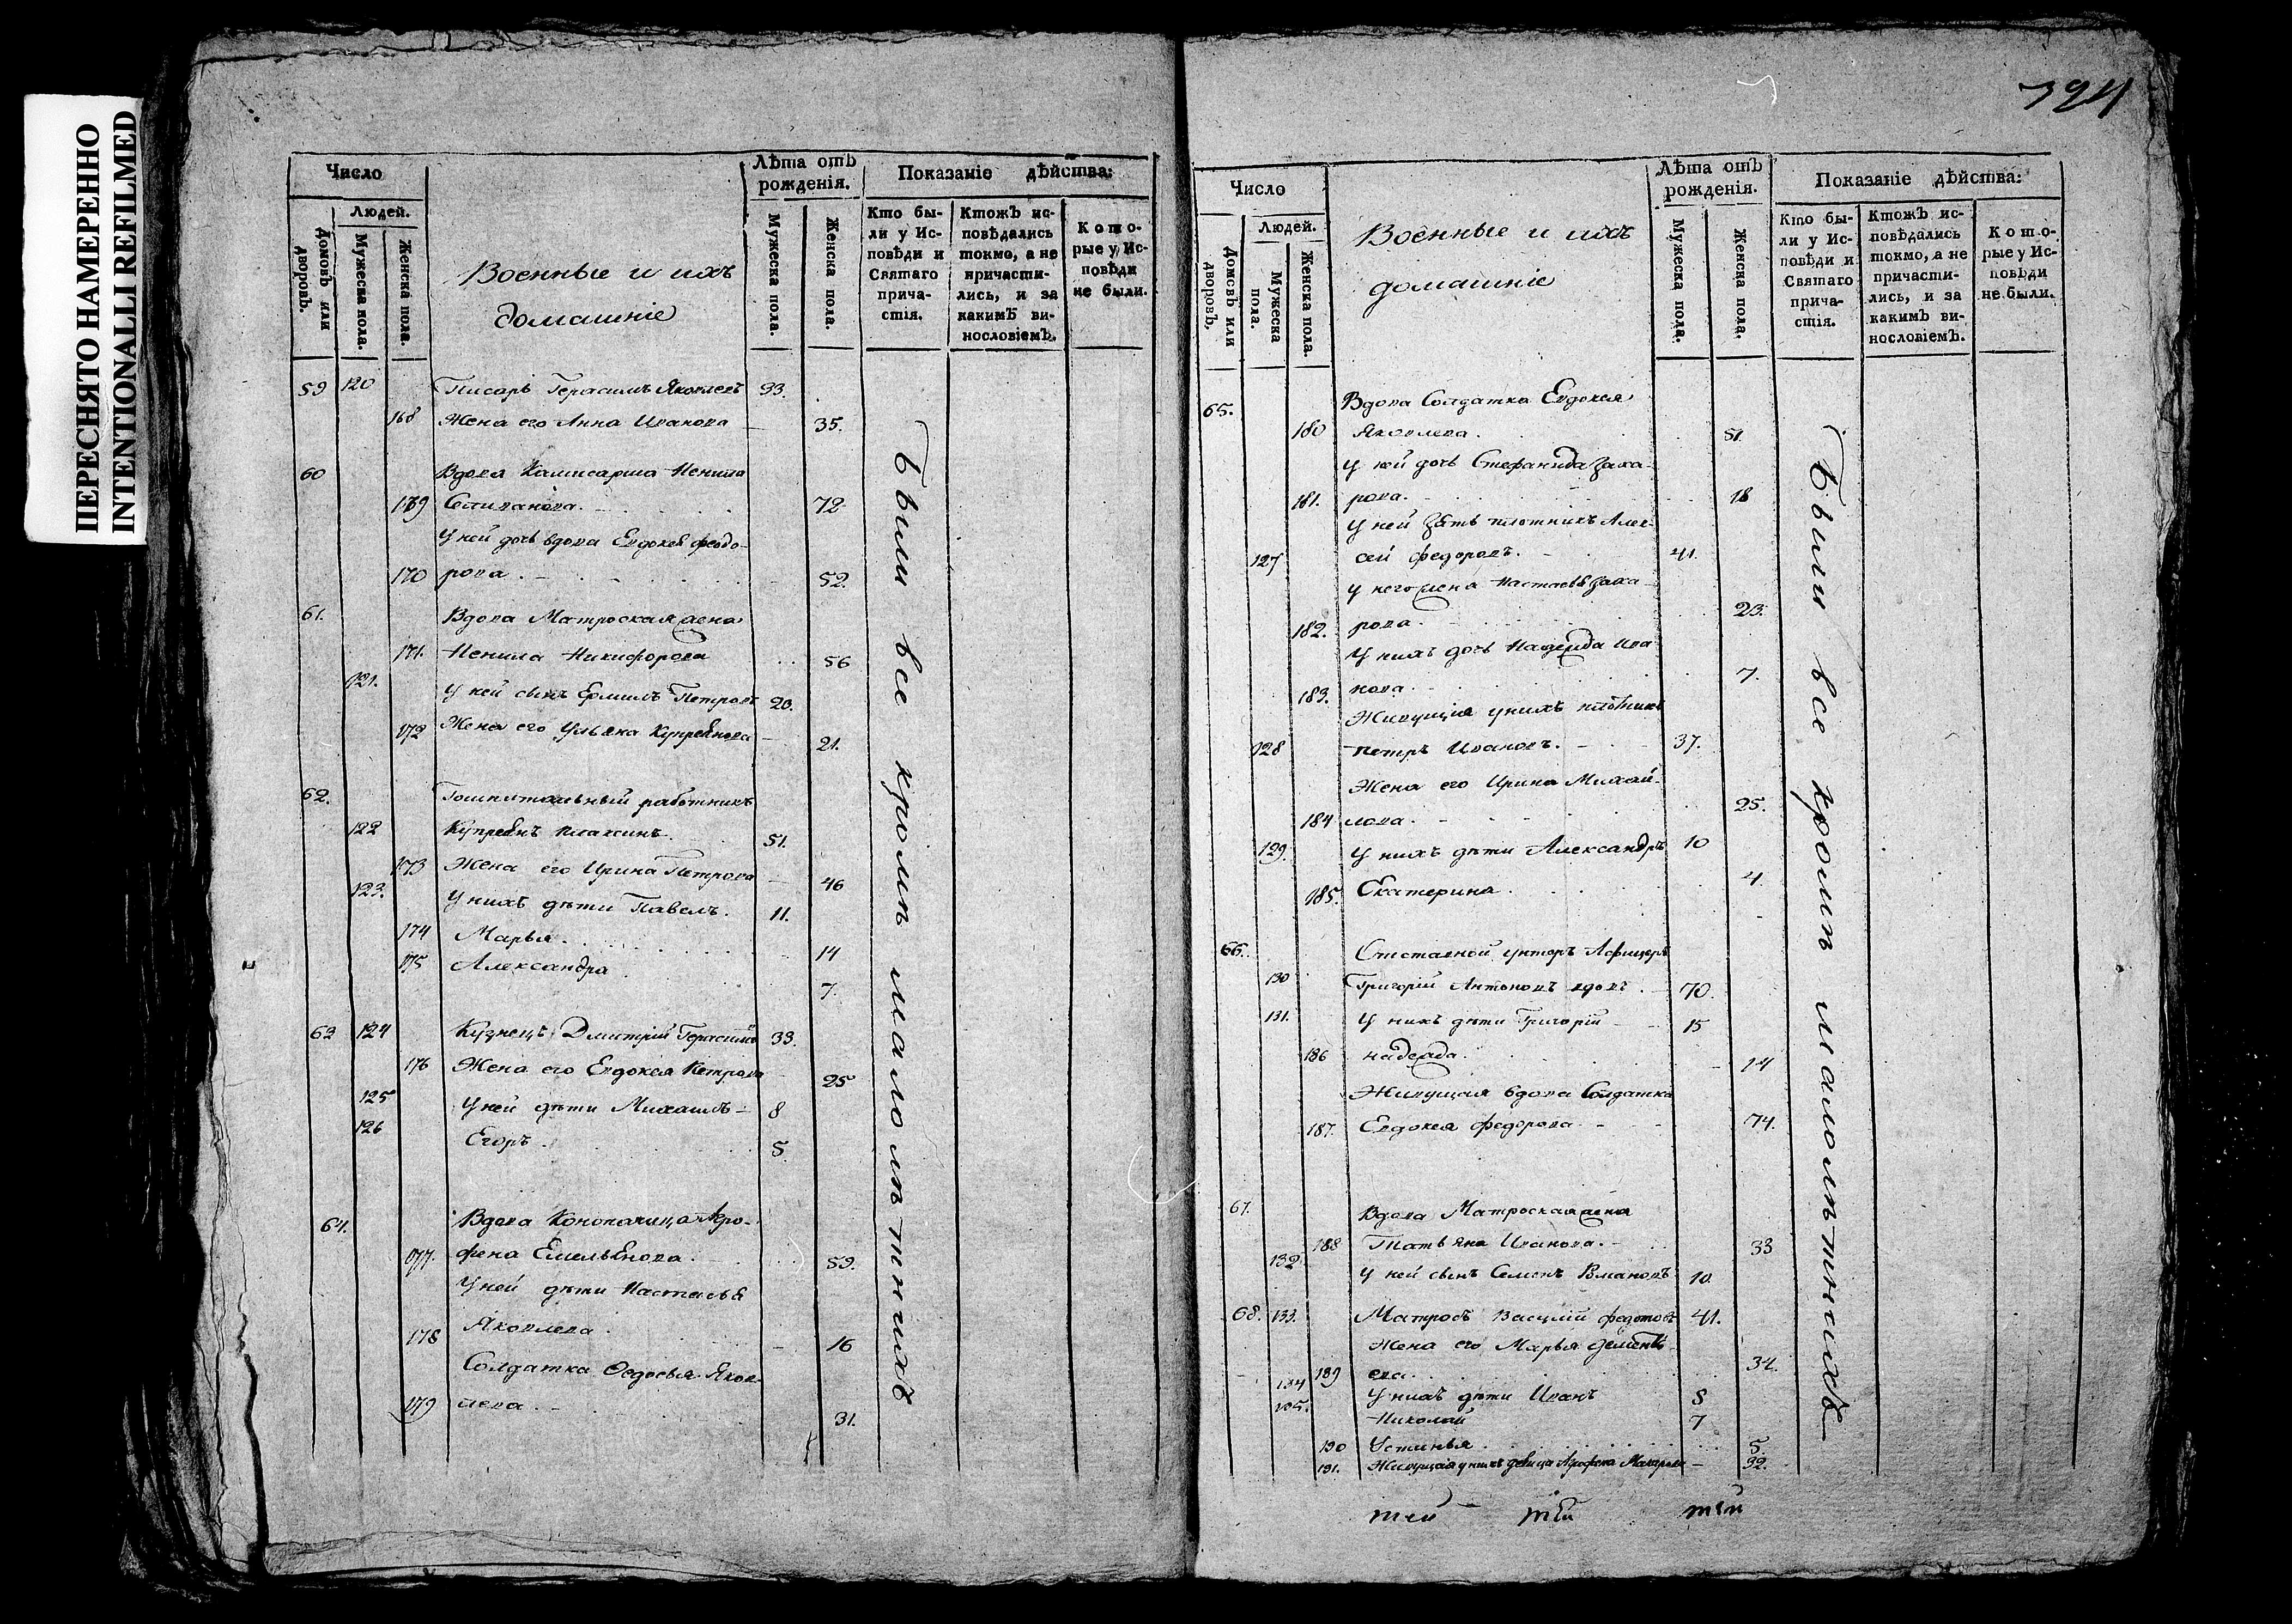 ПЕРЕСНЯТО НАМЕРЕННО
INTENTIONALLI REFILMED
Число
Людей.
Домовъ или дворовъ.
Мужеска пола.
Женска пола.
Военные и ихъ
домашніе
Лѣта отъ рожденія.
Мужеска пола.
Женска пола.
Показаніе дѣйства:
Кто были у Исповѣди и Святаго причастія.
Ктожъ исповѣдались токмо, а не причастились, и за какимъ винословіемъ.
Которые у Исповѣди не были.
59 120 Писарь Герасимъ Яковлевъ 33.
168 Жена его Анна Иванова 35.
60 Вдова Камисарша Ненила
169 Степанова. 72
У ней дочь вдова Евдокея Феодо-
170 рова. 52.
61. Вдова Матроская жена
171. Ненила Никифорова 56
121. У ней сынъ Ермилъ Петровъ 20.
172 Жена его Ульяна Купреянова 21.
62. Гошпитальный работникъ
122 Купреянъ 51.
173 Жена его Ирина Петрова 46
123. У нихъ дѣти Павелъ. 11.
174 Марья. 14
175 Александра 7.
63 124 Кузнецъ Дмитрій Герасимовъ 33.
176 Жена его Евдокея Петрова 25
125 У ней дѣти Михаилъ 8
126 Егоръ. 5.
64. Вдова Конопатчица Агро-
177. фена Емельянова. 59.
У ней дѣти Настасья
178 Яковлева. 16
Солдатка Федосья Яков-
179 лева. 31.
Были все кромѣ малолѣтнихъ
Число
Людей.
Домовъ или дворовъ.
Мужеска пола.
Женска пола.
Военные и ихъ
домашніе
Лѣта отъ рожденія.
Мужеска пола.
Женска пола.
Показаніе дѣйства:
Кто были у Исповѣди и Святаго причастія.
Ктожъ исповѣдались токмо, а не причастились, и за какимъ винословіемъ.
Которые у Исповѣди не были.
65. Вдова Солдатка Евдокея
180 Яковлева. 51.
У ней дочь Стефанида Заха-
181. рова. 18
У ней зять плотникъ Алек-
127 сей Федоровъ. 41.
У него жена Настасья Заха-
182. рова. 23.
У нихъ дочь Надежда Ива-
183. нова. 7.
Живущія у нихъ плотникъ
128 Петръ Ивановъ. 37.
Жена его Ирина Михай-
184 лова. 25.
129. У нихъ дѣти Александръ 10
185. Екатерина. 4.
66. Отставной унтеръ Афицеръ
130 Григорій Антоновъ вдовъ. 70.
131. У нихъ дѣти Григорій 15
186 Надежда. 14
Живущая вдова Солдатка
187. Евдокея Федорова 74.
67. Вдова Матроская жена
188 Татьяна Иванова. 33
132 У ней сынъ Семенъ 10.
68. 133. Матросъ Василій Федотовъ 41.
Жена его Марья Дементь-
189 ева. 34.
134 У нихъ дѣти Иванъ 8
135. Николай 7
190 Устинья. 5.
191. Живущая у нихъ девица Агрофена Макарова 32.
Были все кромѣ малолѣтнихъ